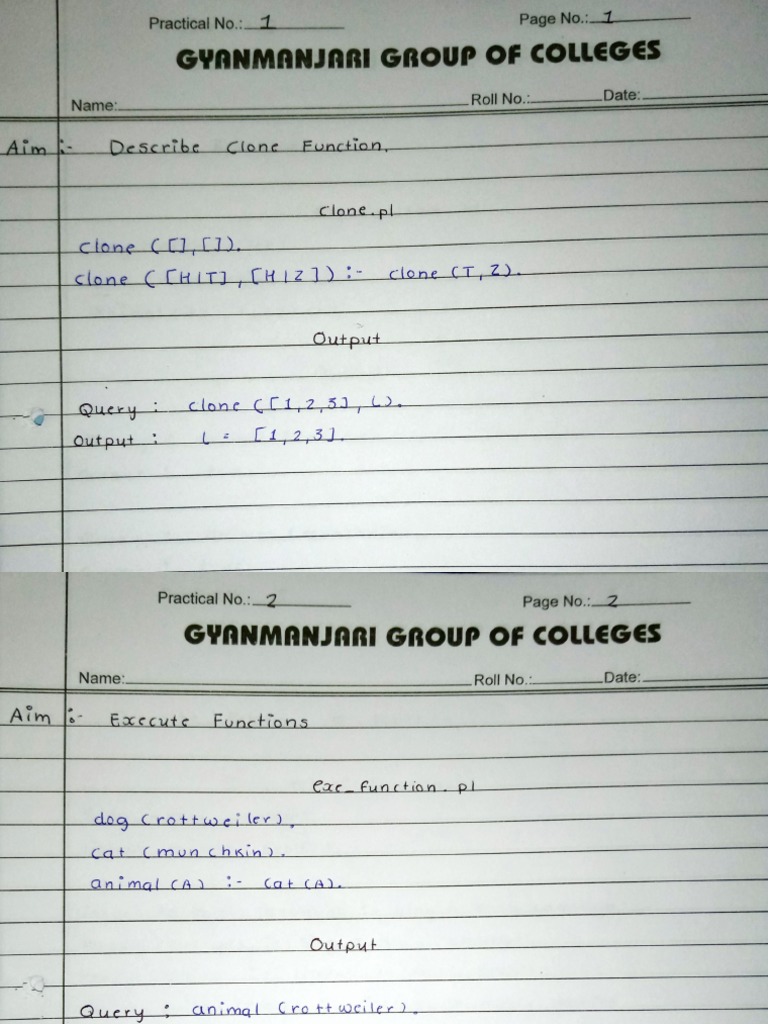 Practical No.: 1 Page No.: 1
GYANMANJARI GROUP OF COLLEGES
Name: Roll No.: Date:
Aim :- Describe Clone Function.
Clone.pl
clone ([],[]).
clone ([H|T],[H|Z]) :- clone (T,Z).
Output
Query : clone ([1,2,3], L).
Output : L = [1,2,3].
Practical No.: 2 Page No.: 2
GYANMANJARI GROUP OF COLLEGES
Name: Roll No.: Date:
Aim :- Execute Functions
exe_function.pl
dog (rottweiler).
cat (munchkin).
animal (A) :- cat (A).
Output
Query : animal (rottweiler).